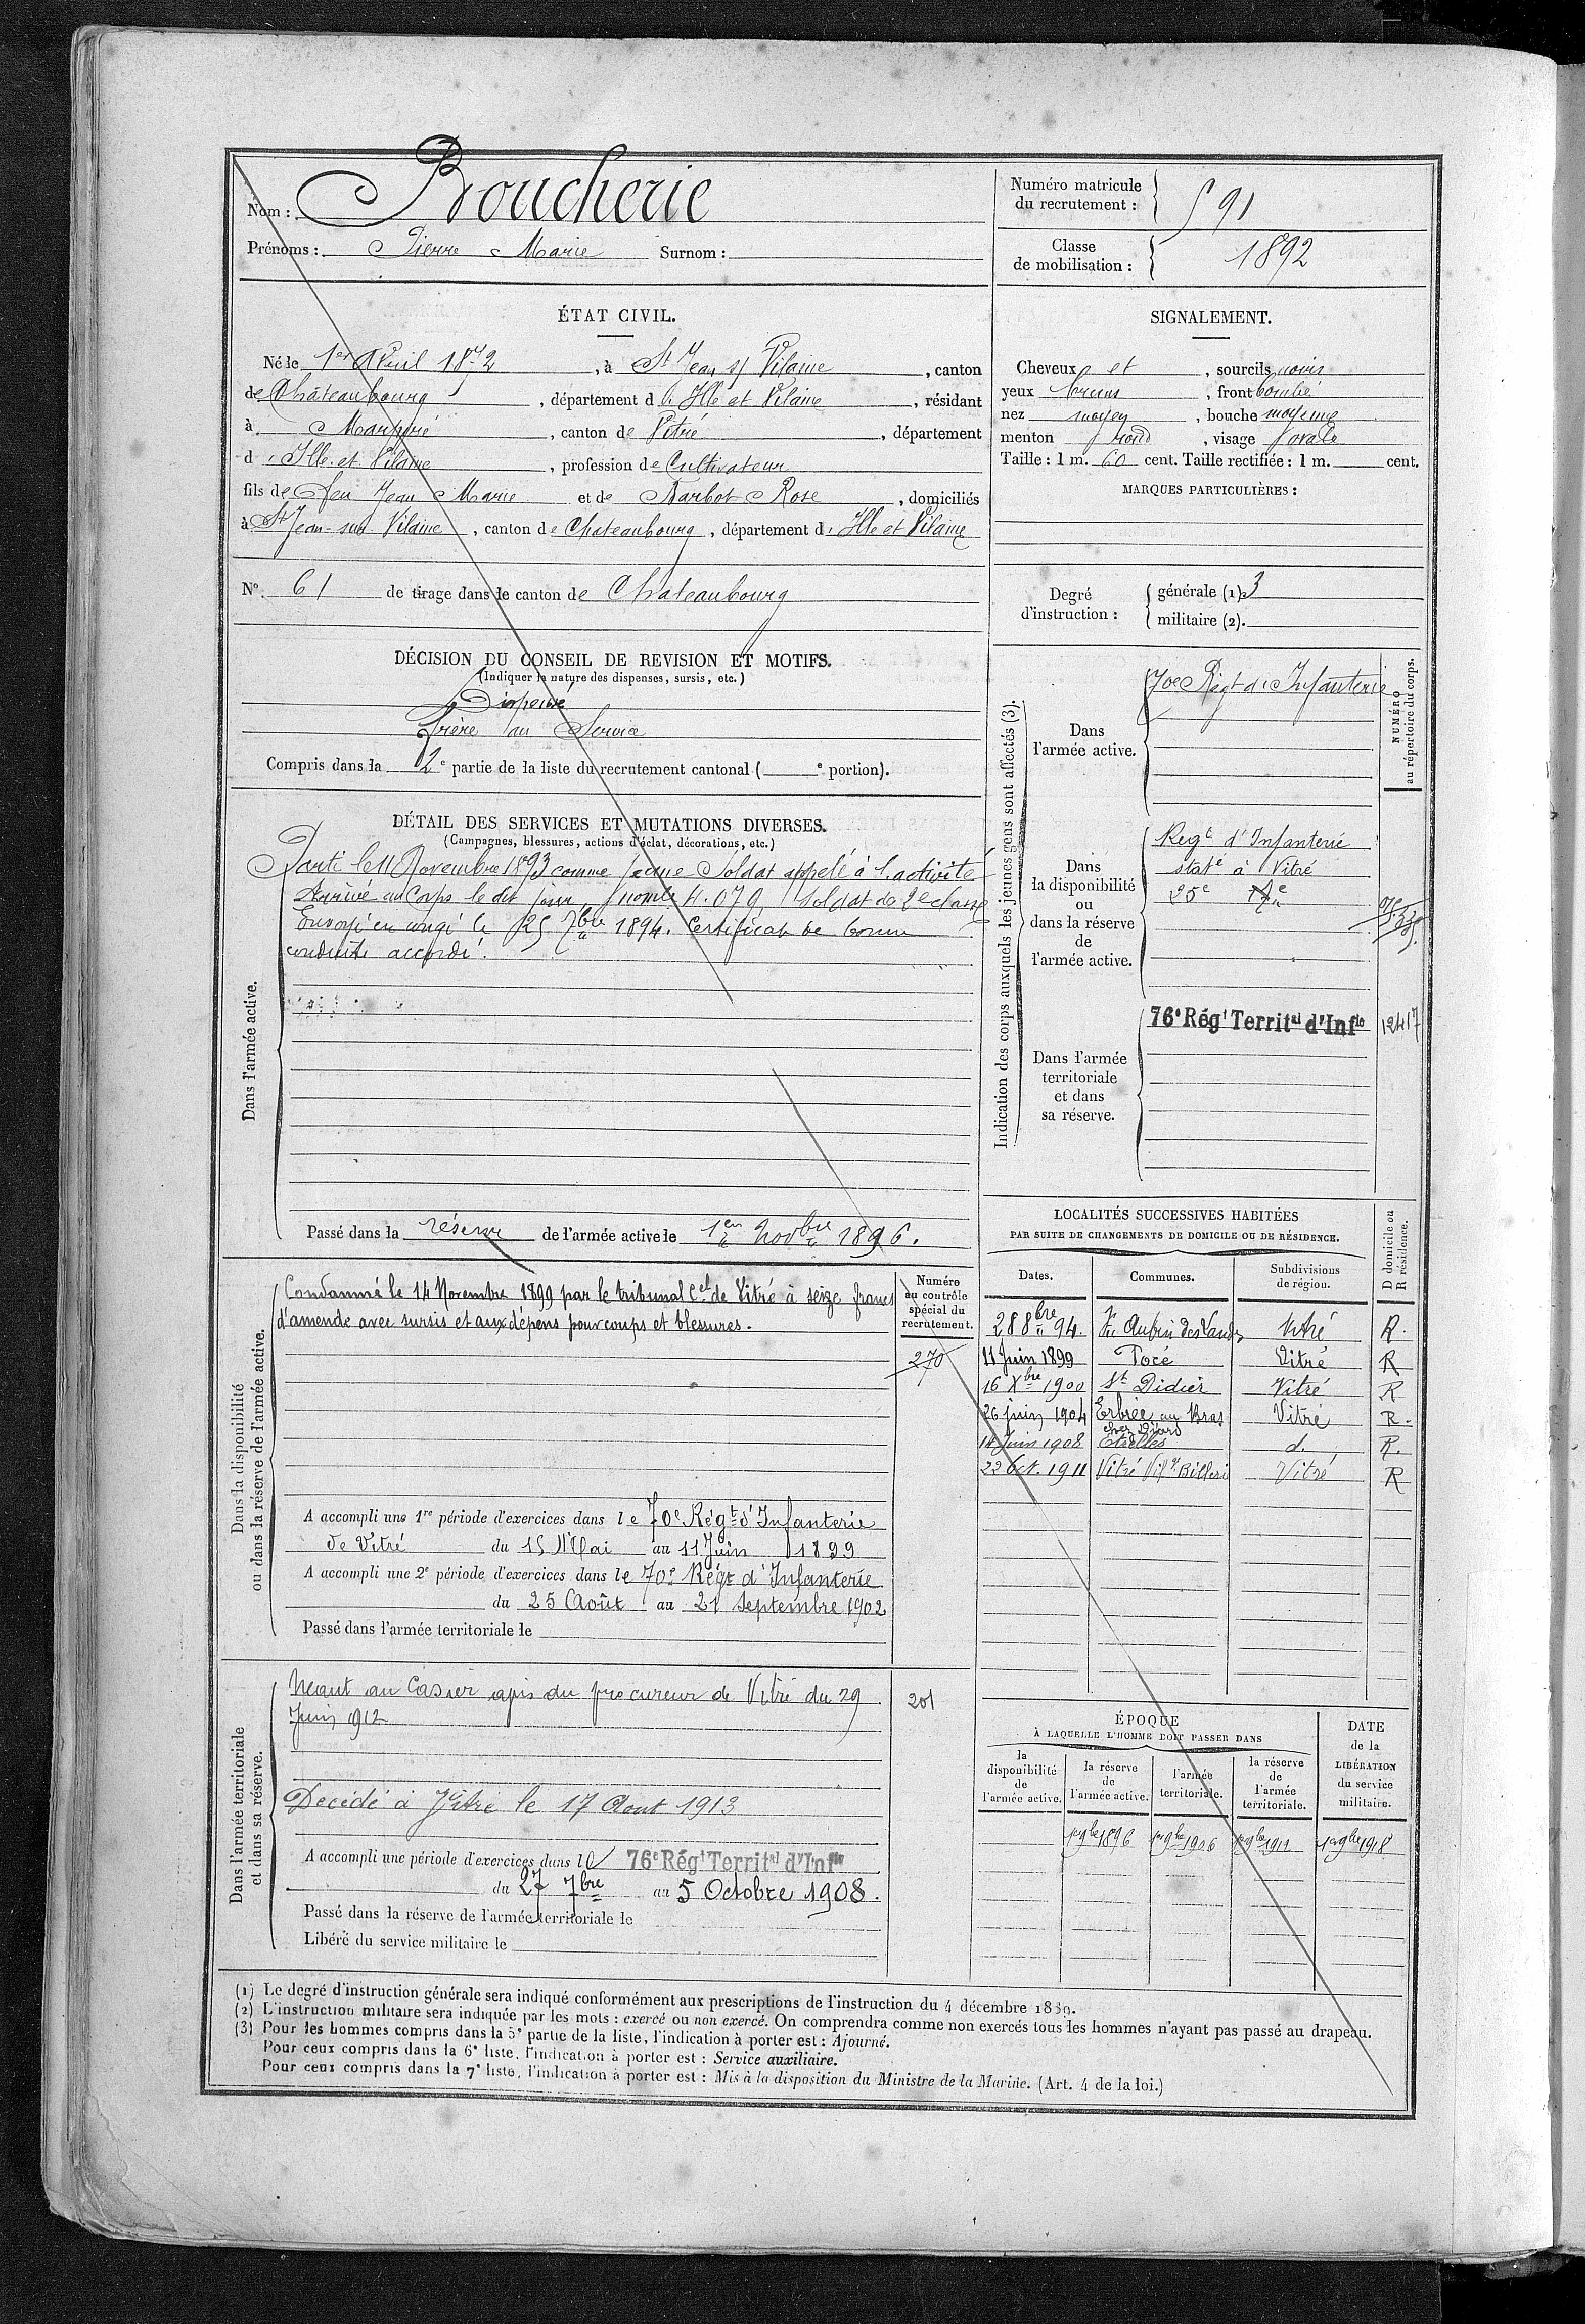 Nom : Boucherie
Prénoms : Pierre Marie Surnom :
Numéro matricule du recrutement : 591
Classe de mobilisation : 1892
ÉTAT CIVIL.
Né le 1er Avril 1872, à St Jean s/ Vilaine, canton
de Châteaubourg, département d'Ille et Vilaine, résidant
à Marpiré, canton de Vitré, département
d'Ille et Vilaine, profession de Cultivateur
fils de feu Jean Marie et de Barbot Rose, domiciliés
à St Jean-sur Vilaine, canton de Chateaubourg, département d'Ille et Vilaine
N° 61 de tirage dans le canton de Chateaubourg
SIGNALEMENT.
Cheveux et, sourcils noirs
yeux bruns, front bombé
nez moyen, bouche moyenne
menton rond, visage ovale
Taille : 1 m. 60 cent. Taille rectifiée : 1 m. cent.
MARQUES PARTICULIÈRES :
Degré d'instruction : générale (1). 3
militaire (2).
DÉCISION DU CONSEIL DE REVISION ET MOTIFS.
(Indiquer la nature des dispenses, sursis, etc.)
Dispensé
Frère au Service
Compris dans la 2e partie de la liste du recrutement cantonal ( e portion).
DÉTAIL DES SERVICES ET MUTATIONS DIVERSES.
(Campagnes, blessures, actions d'éclat, décorations, etc.)
Dans l'armée active.
Parti le 11 Novembre 1893 comme jeune Soldat appelé à l'activité
Arrivé au Corps le dit jour, No mle 4.079, soldat de 2e classe
Envoyé en congé le 25 7bre 1894. Certificat de bonne
conduite accordé.
Passé dans la réserve de l'armée active le 1er Novbre 1896.
Indication des corps auxquels les jeunes gens sont affectés (3).
NUMÉRO au répertoire du corps.
Dans l'armée active.
70e Régt d'Infanterie
Dans la disponibilité ou dans la réserve de l'armée active.
Regt d'Infanterie
staté à Vitré
25e
Dans l'armée territoriale et dans sa réserve.
76e Régt Territal d'Infie 12417
LOCALITÉS SUCCESSIVES HABITÉES
PAR SUITE DE CHANGEMENTS DE DOMICILE OU DE RÉSIDENCE.
Dates. Communes. Subdivisions de région. D domicile ou R résidence.
28 8bre 94. St Aubin des Landes Vitré R.
11 Juin 1899 Pocé Vitré R
16 Xbre 1900 St Didier Vitré R
26 juin 1904 Erbrée au Bras Vitré R.
chez Diard
14 Juin 1908 Etrelles d. R.
22 Oct. 1911 Vitré Vitré R
Dans la disponibilité ou dans la réserve de l'armée active.
Numéro au contrôle spécial du recrutement.
270
Condamné le 14 Novembre 1899 par le tribunal Cel de Vitré à seize francs
d'amende avec sursis et aux dépens pour coups et blessures.
A accompli une 1re période d'exercices dans le 70e Régt d'Infanterie
de Vitré du 15 Mai au 11 Juin 1899
A accompli une 2e période d'exercices dans le 70e Régt d'Infanterie
du 25 Août au 21 Septembre 1902
Passé dans l'armée territoriale le
Dans l'armée territoriale et dans sa réserve.
Néant au Casier apis du procureur de Vitré du 29 201
Juin 1912
Décédé à Vitré le 17 Aout 1913
A accompli une période d'exercices dans le 76e Régt Territal d'Infie
du 27 7bre au 5 Octobre 1908.
Passé dans la réserve de l'armée territoriale le
Libéré du service militaire le
ÉPOQUE
À LAQUELLE L'HOMME DOIT PASSER DANS
la disponibilité de l'armée active.
la réserve de l'armée active.
l'armée territoriale.
la réserve de l'armée territoriale.
DATE de la LIBÉRATION du service militaire.
1er 9bre 1896 1er 9bre 1906 1er 9bre 1912 1er 9bre 1918
(1) Le degré d'instruction générale sera indiqué conformément aux prescriptions de l'instruction du 4 décembre 1889.
(2) L'instruction militaire sera indiquée par les mots : exercé ou non exercé. On comprendra comme non exercés tous les hommes n'ayant pas passé au drapeau.
(3) Pour les hommes compris dans la 5e partie de la liste, l'indication à porter est : Ajourné.
Pour ceux compris dans la 6e liste, l'indication à porter est : Service auxiliaire.
Pour ceux compris dans la 7e liste, l'indication à porter est : Mis à la disposition du Ministre de la Marine. (Art. 4 de la loi.)